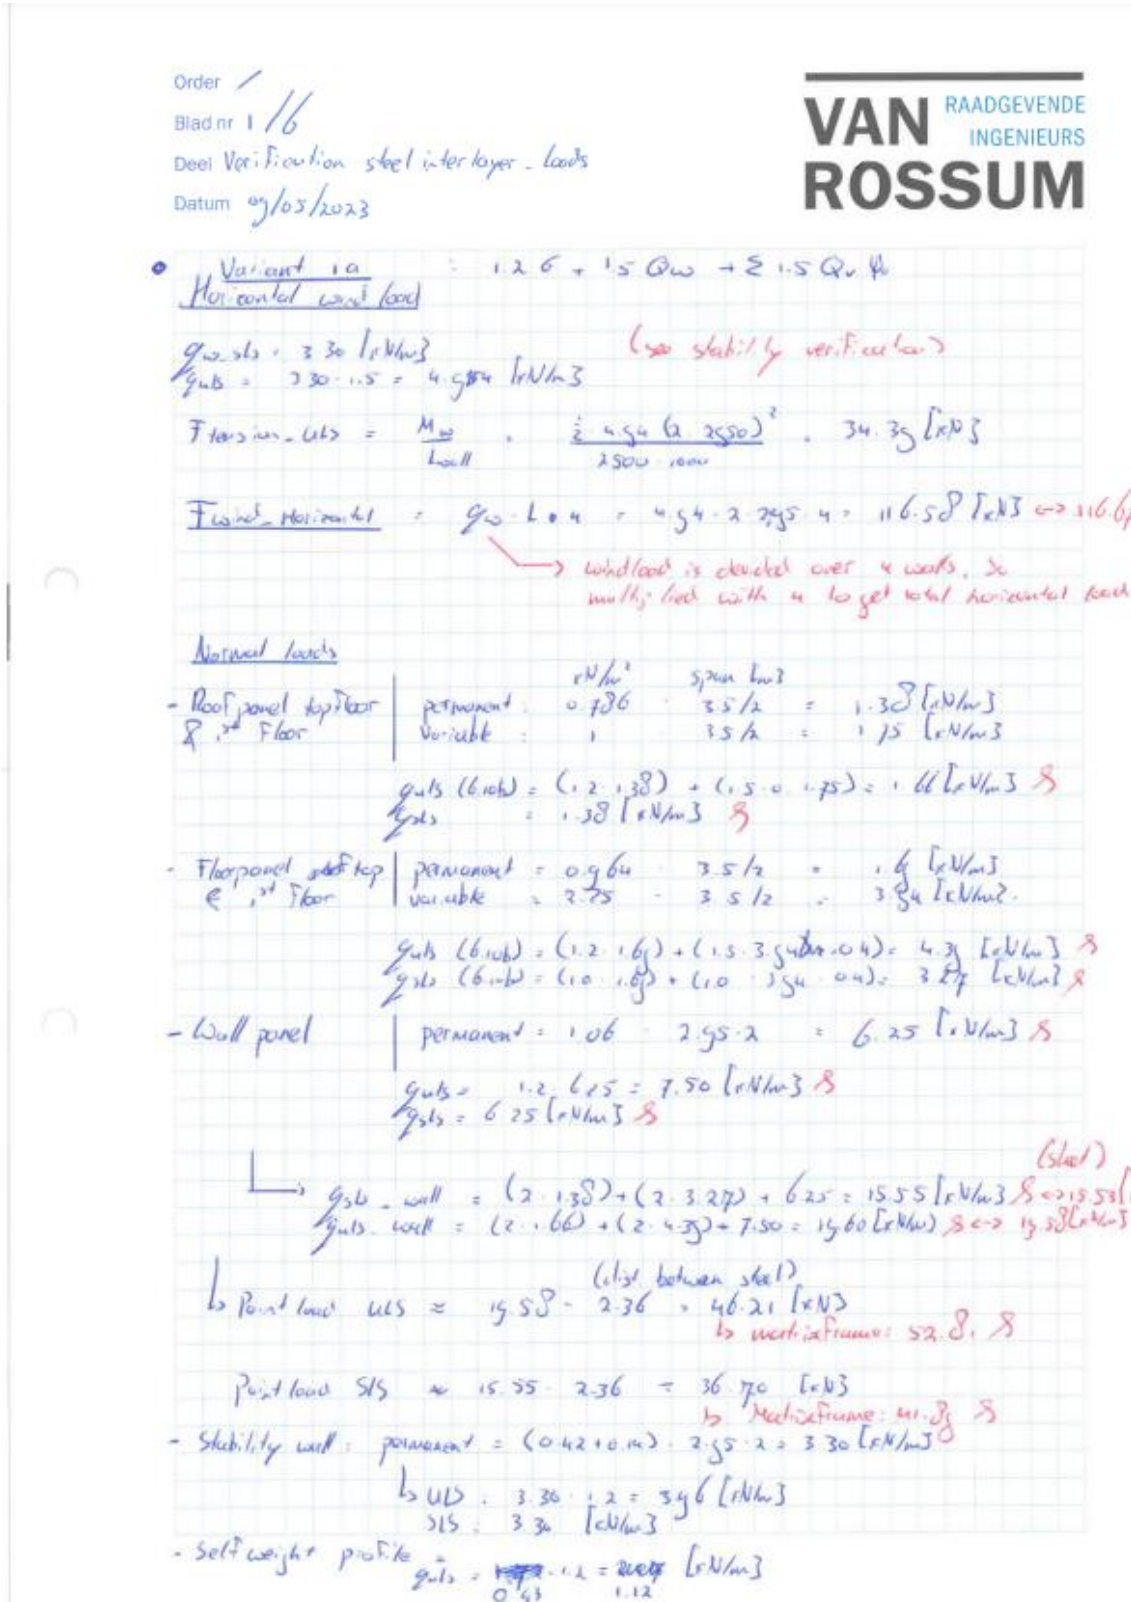 Order /
Blad nr 1/6
Deel Verification steel interlayer - Loads
Datum 09/05/2023
VAN ROSSUM
RAADGEVENDE INGENIEURS
Variant 1a : 1.2 G + 1.5 Qw + Σ 1.5 Qv ψ0
Horizontal wind load
qw_sls = 3.30 [kN/m]
(see stability verification)
quls = 3.30 · 1.5 = 4.954 [kN/m]
Ftension_ULS = Mw / Lwall = ½ · 4.94 (2 · 2950)² / 2500 · 1000 = 34.39 [kN]
Fwind_Horizontal = qw · L · 4 = 4.94 · 2 · 2.95 · 4 = 116.58 [kN] <-> 116.6
-> windload is devided over 4 walls, so
multiplied with 4 to get total horizontal load
Normal loads
kN/m² span [m]
- Roof panel top floor | permanent : 0.786 · 3.5/2 = 1.38 [kN/m]
& 1st Floor | Variable : 1 · 3.5/2 = 1.75 [kN/m]
quls (6.10b) = (1.2 · 1.38) + (1.5 · 0 · 1.75) = 1.66 [kN/m]
qsls = 1.38 [kN/m]
- Floorpanel top | permanent = 0.964 · 3.5/2 = 1.69 [kN/m]
& 1st Floor | variable = 2.25 · 3.5/2 = 3.94 [kN/m].
quls (6.10b) = (1.2 · 1.69) + (1.5 · 3.94 · 0.4) = 4.39 [kN/m]
qsls (6.10b) = (1.0 · 1.69) + (1.0 · 3.94 · 0.4) = 3.27 [kN/m]
- Wall panel | permanent = 1.06 · 2.95 · 2 = 6.25 [kN/m]
quls = 1.2 · 6.25 = 7.50 [kN/m]
qsls = 6.25 [kN/m]
(steel)
qsls_wall = (2 · 1.38) + (2 · 3.27) + 6.25 = 15.55 [kN/m] <-> 15.53 [
quls_wall = (2 · 1.66) + (2 · 4.39) + 7.50 = 19.60 [kN/m] <-> 19.58 [kN/m]
(dist. between steel)
Point load ULS ≈ 19.58 · 2.36 = 46.21 [kN]
matrixframe: 52.8.
Point load SLS ≈ 15.55 · 2.36 = 36.70 [kN]
Matrixframe: 41.89
- Stability wall: permanent = (0.42 + 0.14) · 2.95 · 2 = 3.30 [kN/m]
ULS = 3.30 · 1.2 = 3.96 [kN/m]
SLS = 3.30 [kN/m]
- Self weight profile
quls = 0.93 · 1.2 = 1.12 [kN/m]